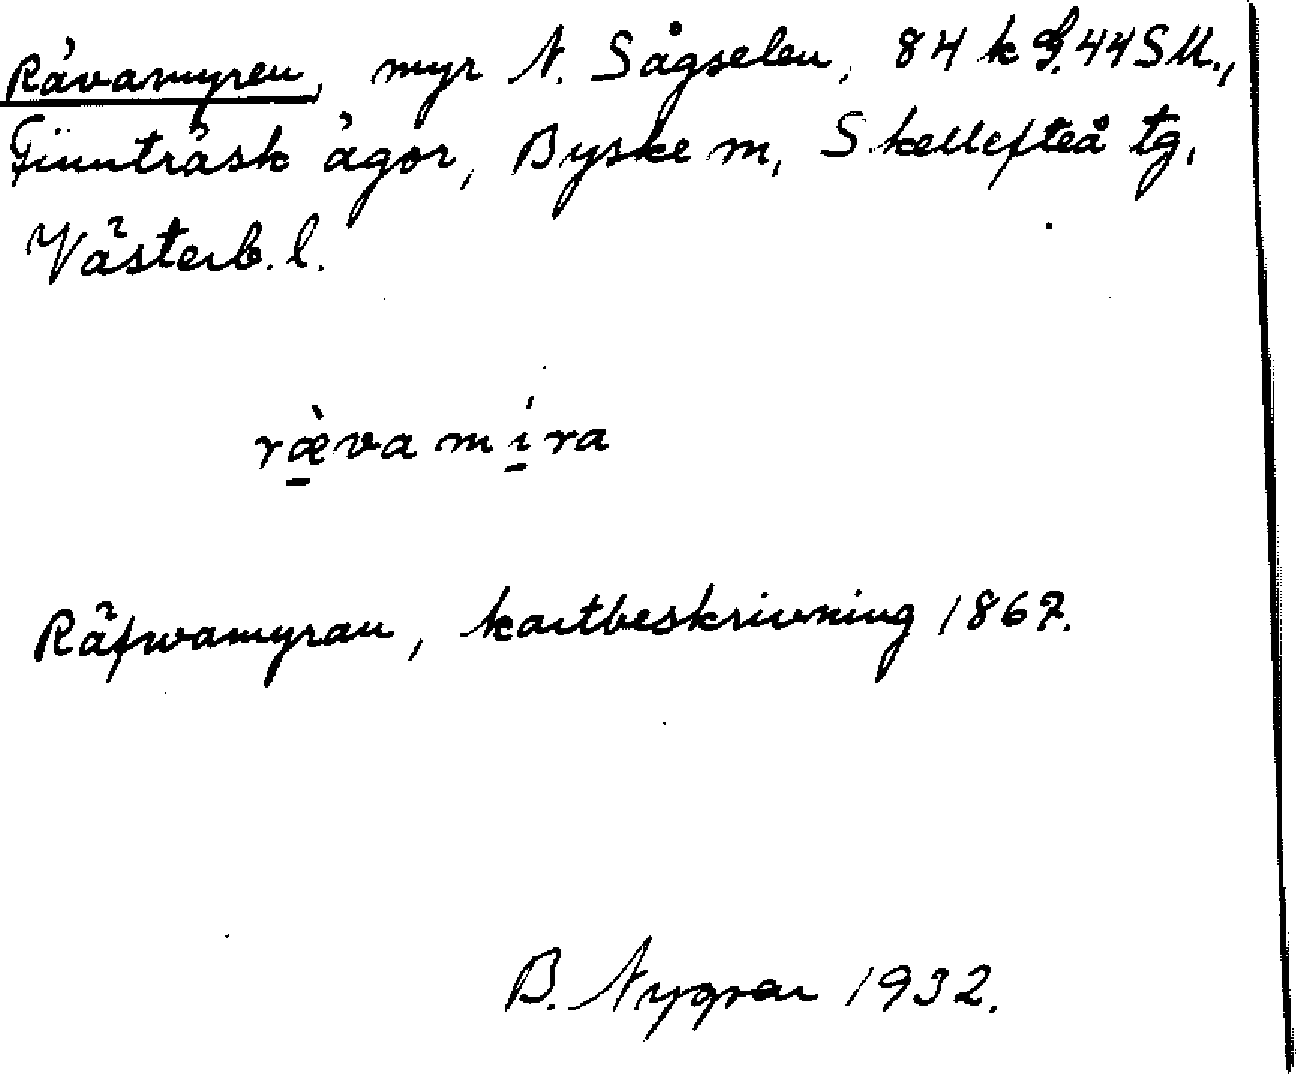 Rävamyren, myr N. Sågselen, 84 k S. 44 S.U.,
Finnträsk ägor, Byske sn, Skellefteå tg,
Västerb. l.
rævamira
Räfwamyran, kartbeskrivning 1867.
B. Nygren 1932.